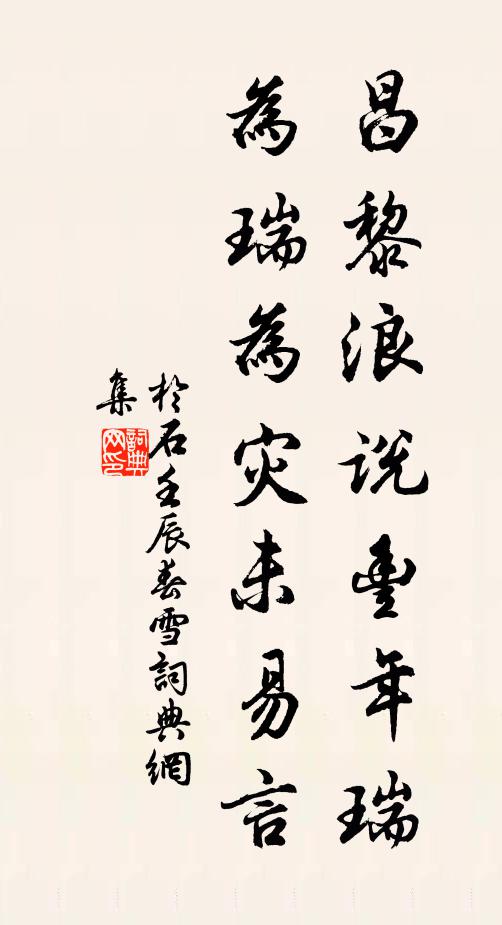 昌黎浪說豐年瑞
為瑞為灾未易言
於石壬辰春雪詞典網
集
詞典
网印